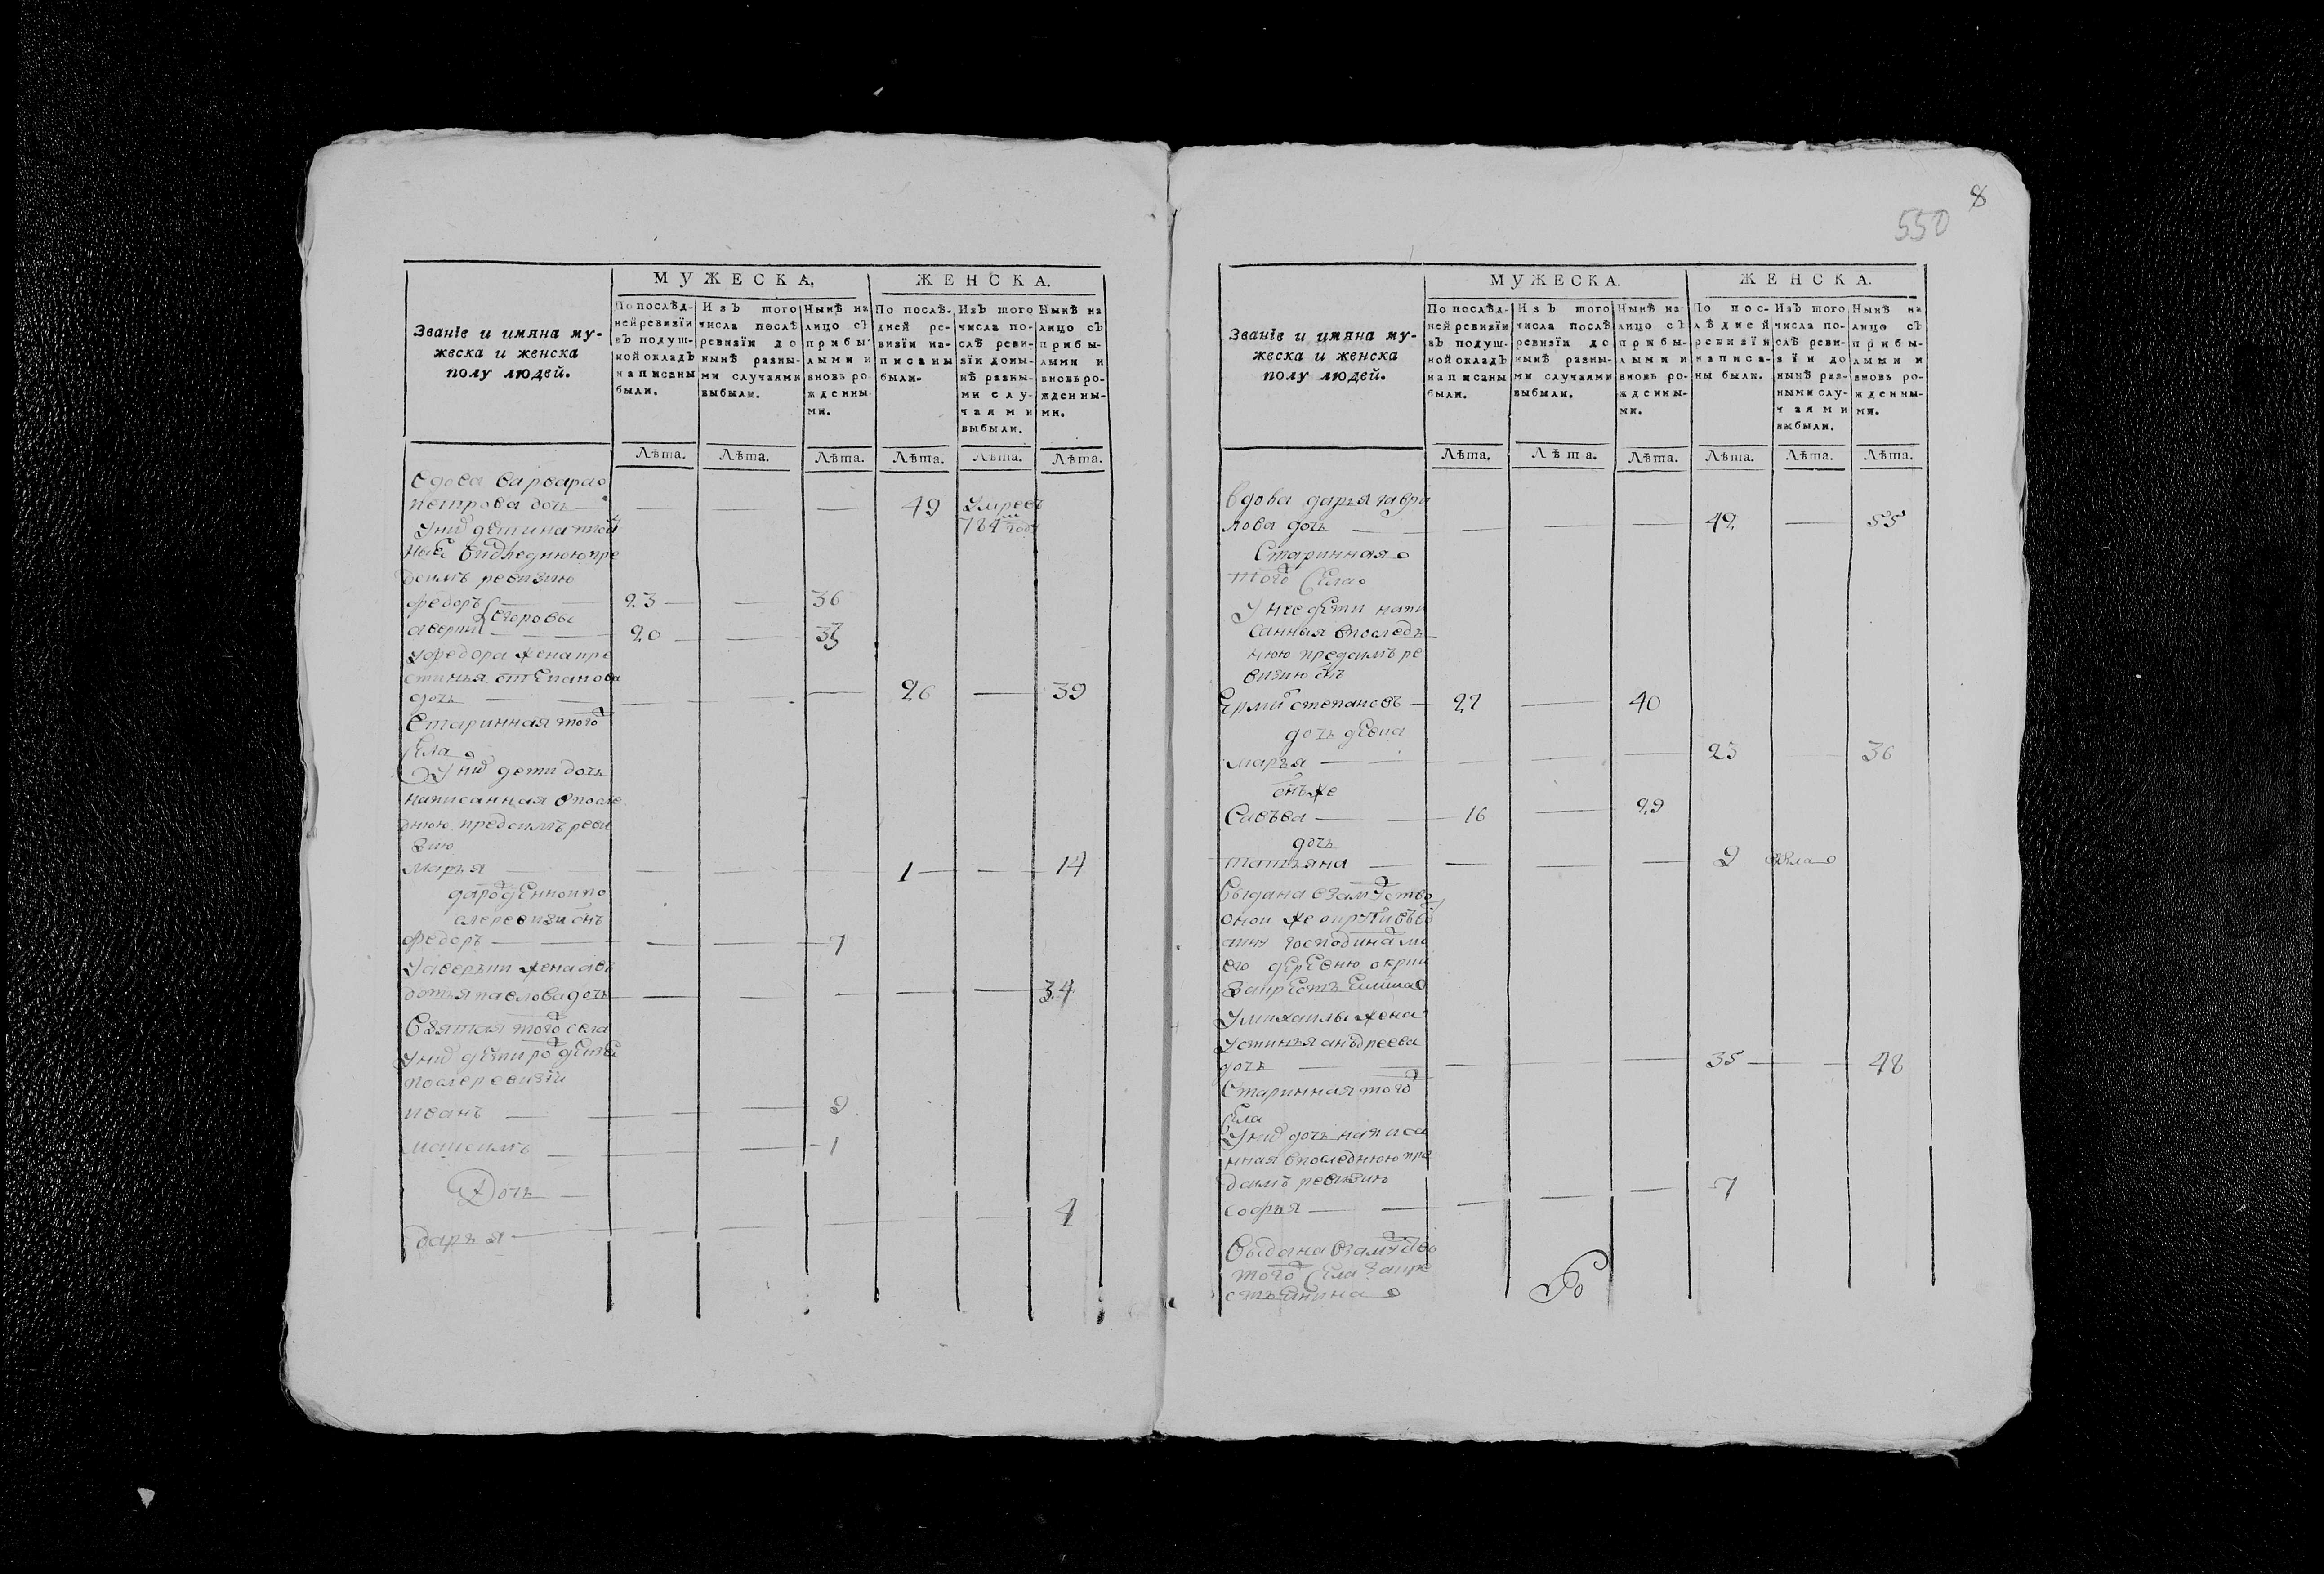 8
550
МУЖЕСКА.
ЖЕНСКА.
Званіе и имяна му-
жеска и женска
полу людей.
По послѣд-
ней ревизіи
въ подуш-
ной окладъ
написаны
были.
Изъ того
числа послѣ
ревизіи до
нынѣ разны-
ми случаями
выбыли.
Нынѣ на
лицо съ
прибы-
лыми и
вновь ро-
жденны-
ми.
По послѣ-
дней ре-
визіи на-
писаны
были.
Изъ того
числа по-
слѣ реви-
зіи доны-
нѣ разны-
ми слу-
чаями
выбыли.
Нынѣ на
лицо съ
прибы-
лыми и
вновь ро-
жденны-
ми.
Лѣта. Лѣта. Лѣта. Лѣта. Лѣта. Лѣта.
вдова варвара
петрова дочь 49 умре въ
784 м году
У ней дети написан
ные в последнюю пре
дсимъ ревизию
федоръ 23 36
егоровы
аверки 20 33
у федора жена пре
стинья степанова
дочь 26 39
Старинная того
села
У них дети дочь
написанная в после
днюю предсимъ реви
зию
марья 1 14
после ревизи снъ
федоръ 7
У аверьки жена авъ
дотья павлова дочь 34
Взятая того села
У них дети рожденые
после ревизіи
иванъ 9
максимъ 1
Дочь
дарья 4
МУЖЕСКА.
ЖЕНСКА.
Званіе и имяна му-
жеска и женска
полу людей.
По послѣд-
ней ревизіи
въ подуш-
ной окладъ
написаны
были.
Изъ того
числа послѣ
ревизіи до
нынѣ разны-
ми случаями
выбыли.
Нынѣ на
лицо съ
прибы-
лыми и
вновь ро-
жденны-
ми.
По пос-
лѣдней
ревизіи
написа-
ны были.
Изъ того
числа по-
слѣ реви-
зіи до
нынѣ раз-
ными слу-
чаями
выбыли.
Нынѣ на
лицо съ
прибы-
лыми и
вновь ро-
жденны-
ми.
Лѣта. Лѣта. Лѣта. Лѣта. Лѣта. Лѣта.
вдова дарья гаври
лова дочь 42 55
Старинная
того села
У нее дети напи
санныя в последъ
нюю предсимъ ре
визию снъ
Ермий степановъ 27 40
дочь девка
марья 23 36
снъ же
Савъва 16 29
дочь
татьяна 9
Выдана в замужство
оной же округи въ
господина
его деревню
У михаилы жена
устинья андреева
дочь 35 48
Старинная того
села
У них дочь написа
нная в последнюю пре
дсимъ ревизию
софья 7
Выдана в замужство
того села за кре
стьянина